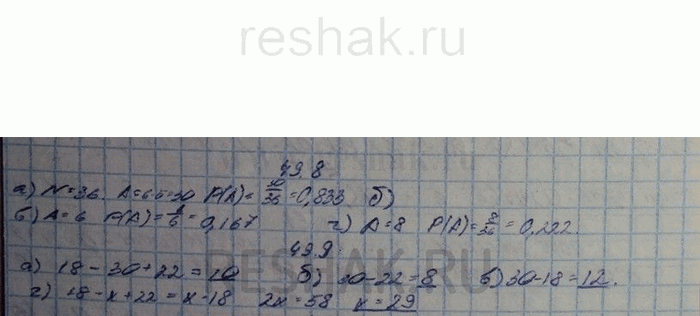 reshak.ru
49.8
а) N=36. A=6·5=30 P(A)= 30/36 =0,833 б)
в) A=6 P(A)= 1/6 =0,167 г) A=8 P(A)= 8/36 = 0,222.
49.9
RESHAK.RU
а) 18-30+22=10 б) 30-22=8 в) 30-18=12.
г) 18-x+22=x-18 2x=58 x=29